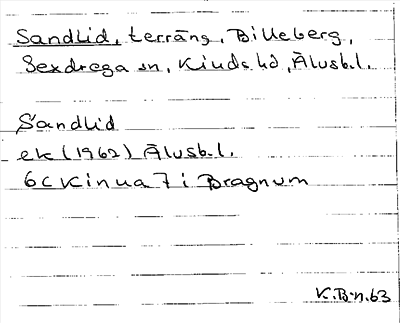 Sandlid, terräng, Billeberg,
Sexdrega sn, Kinds hd, Älvsb.l.
Sandlid
ek (1962) Älvsb.l.
6c Kinna 7 i Bragnum
K.B-n.63